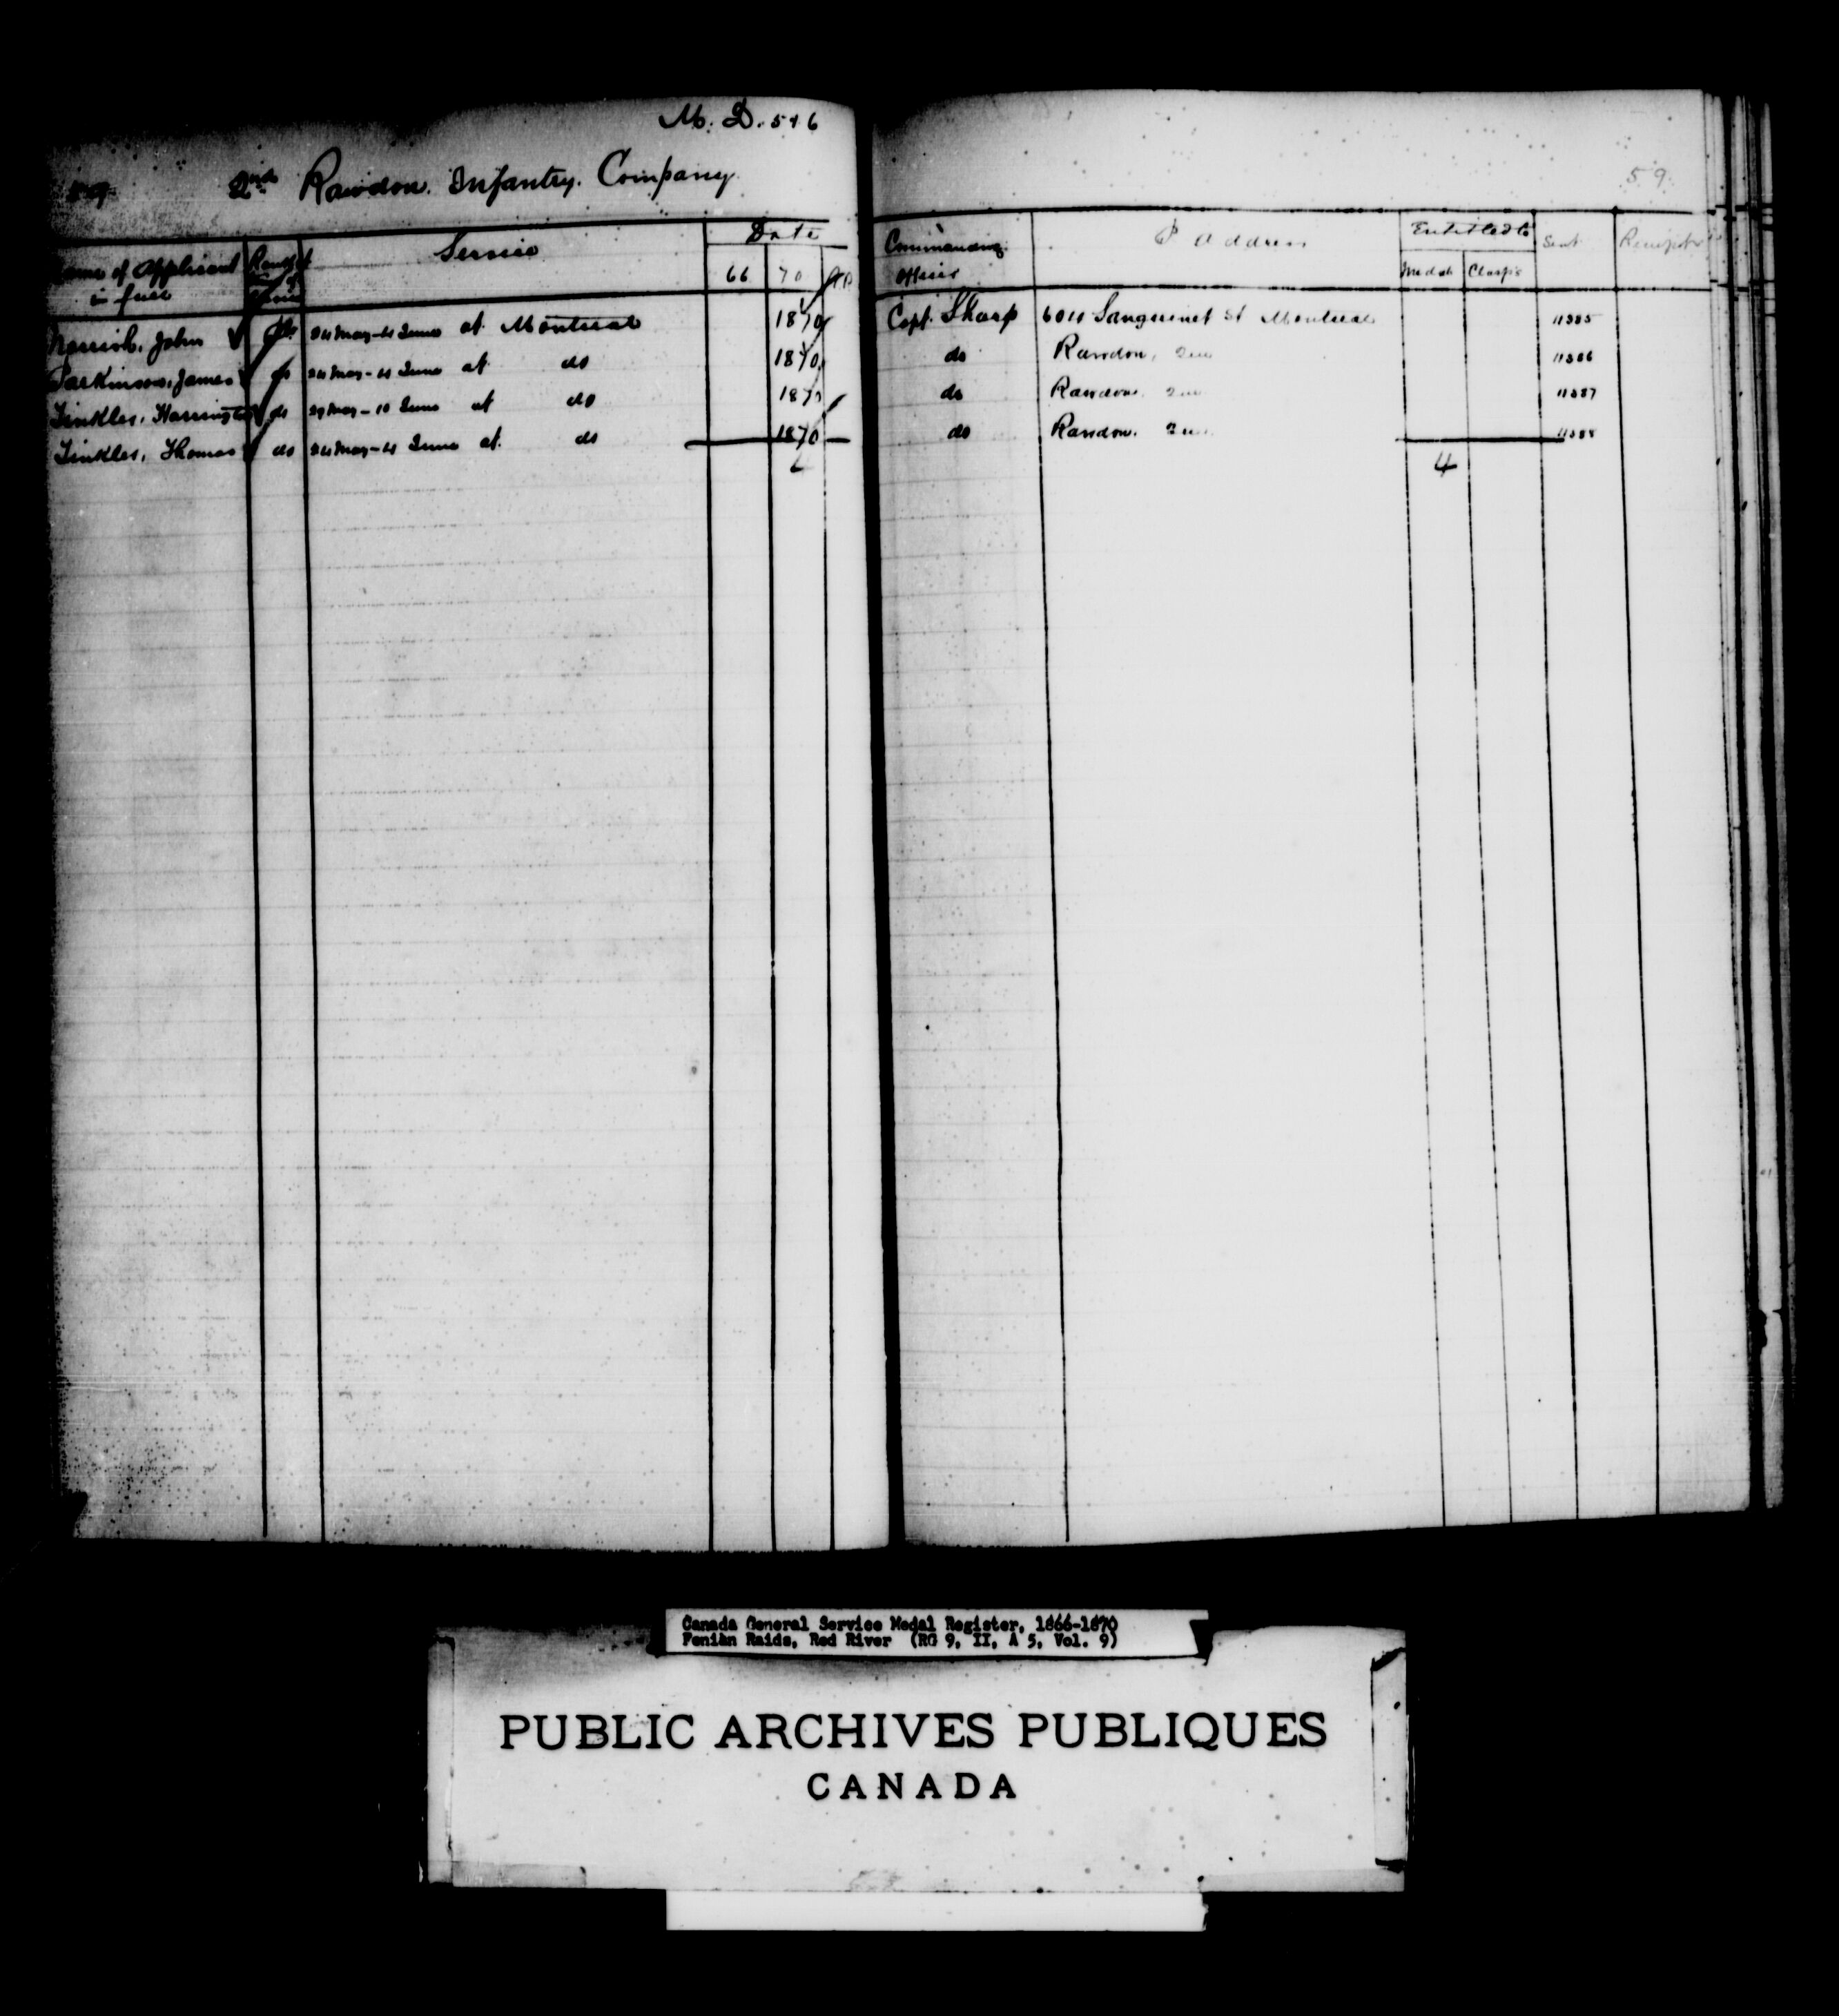 M. D. 5 & 6
59 2nd Rawdon. Infantry. Company
59
Name of Applicant in full Rank at Service Date Commanding Officer P Address Entitled to Sent Receipt
66 70 Medal Clasps
John Pte 24 May - 4 June at Montreal 1870 Capt. Sharp Sanguinet St Montreal 11385
Parkinson, James do 24 May - 4 June at do 1870 do Rawdon, Que 11386
Tinkler, Harrington do 29 May - 10 June at do 1870 do Rawdon. Que 11387
Tinkler, Thomas do 24 May - 4 June at do 1870 do Rawdon. Que 11388
4 4
Canada General Service Medal Register, 1866-1870
Fenian Raids, Red River (RG 9, II, A 5, Vol. 9)
PUBLIC ARCHIVES PUBLIQUES
CANADA